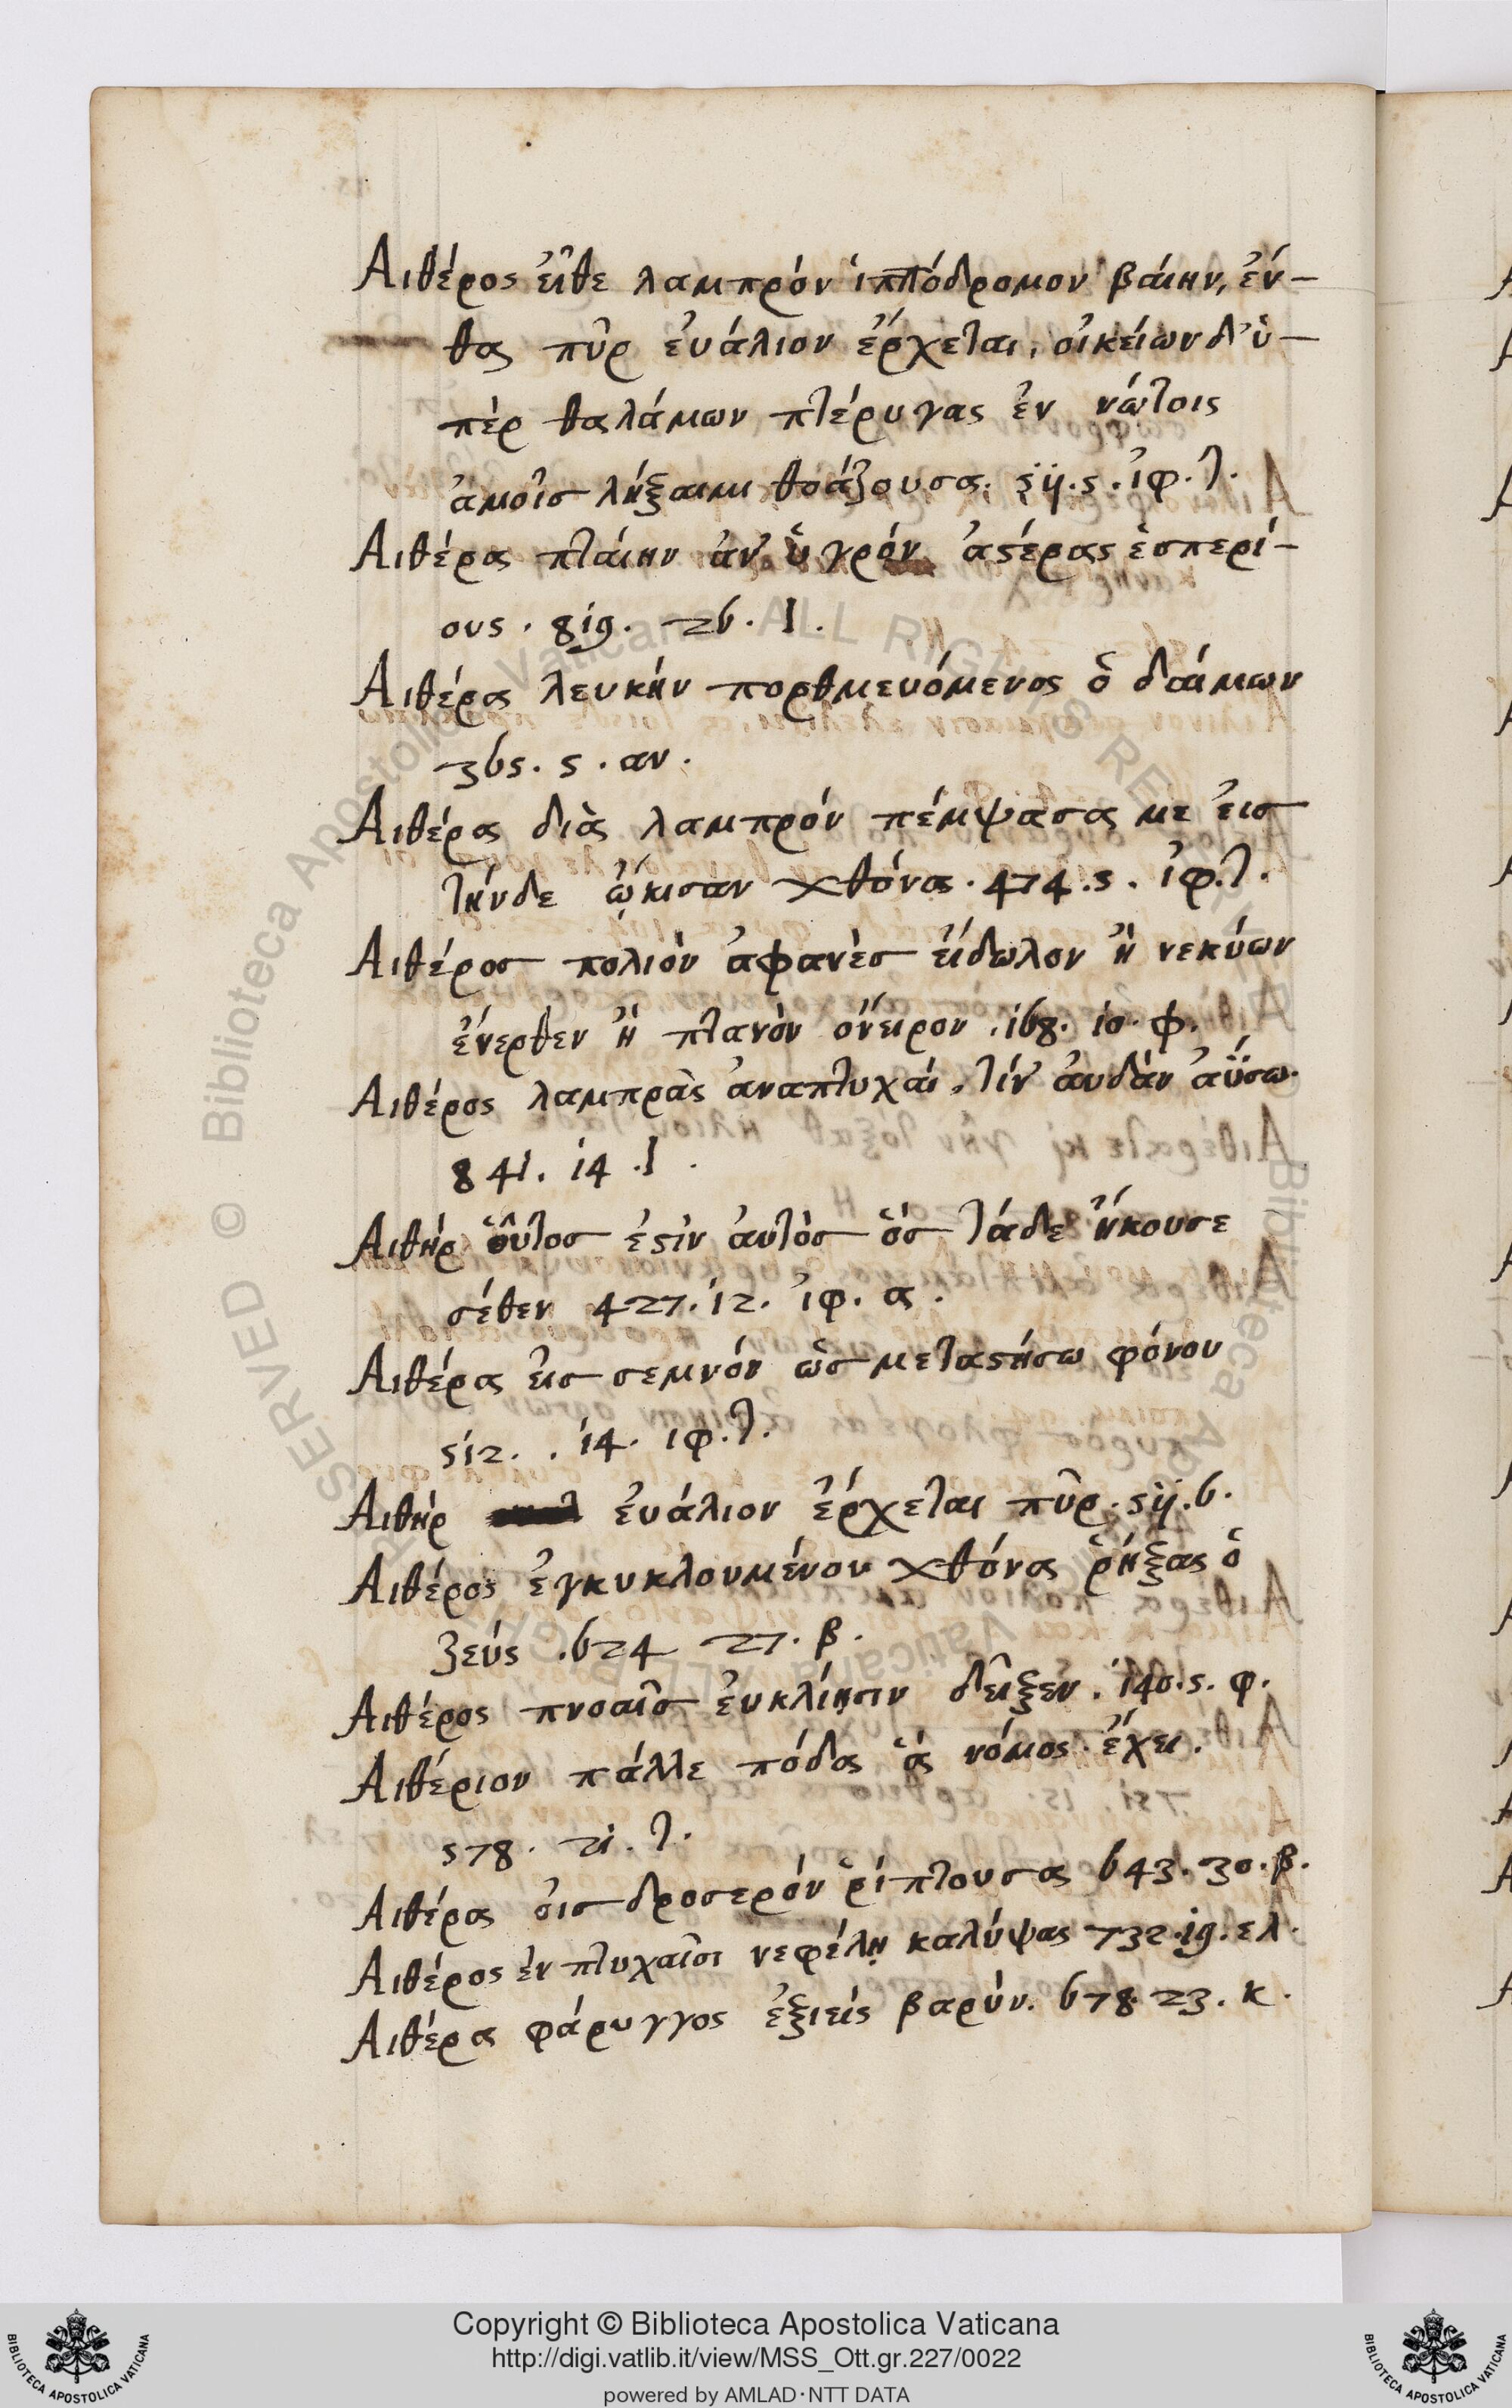 Αιθέρος εἴθε λαμπρόν ἱππόδρομον βαίην, ἐν-
θα πῦρ εὐάλιον ἔρχεται, οἰκείων δ' ὑ-
πὲρ θαλάμων πτέρυγας ἐν νώτοις
ἁμοῖσ λήξαιμι θοάζουσα. 511. 5. ἰφ. τ.
Αιθέρα πταίην ἀν' ὑγρόν ἀστέρας ἑσπερί-
ους. 819. 26. Ι.
Αιθέρα λευκήν πορθμευόμενος ὁ δαίμων
365. 5. αν.
Αιθέρα διὰ λαμπρόν πέμψασα με εἰσ
τήνδε ᾤκισαν χθόνα. 474. 5. ἰφ. τ.
Αιθέροσ πολιὸν ἀφανὲσ εἴδωλον ἢ νεκύων
ἔνερθεν ἢ πτανὸν ὄνειρον. 168. 10. φ.
Αιθέρος λαμπρὰς ἀναπτυχαί, τίν' αὐδὰν αὔσω.
841. 14. Ι.
Αιθὴρ οὗτοσ ἐστὶν αὐτὸσ ὃσ τάδε ἤκουσε
σέθεν 427. 12. ἰφ. α.
Αιθέρα εἰσ σεμνόν ὡσ μεταστήσω φόνου
512. . 14. ιφ. τ.
Αιθὴρ εὐάλιον ἔρχεται πῦρ. 511. 6.
Αιθέρος ἐγκυκλουμένου χθόνα ῥήξας ὁ
ζεύς. 624 27. β.
Αιθέρος πνοαῖσ εὐκλίῃσιν δεῖξεν. 140. 5. φ.
Αιθέριον πάλλε πόδα ἁς νόμος ἔχει.
578. 21. τ.
Αιθέρα οἰσ δροσερόν ῥίπτουσα 643. 30. β.
Αιθέρος ἐν πτυχαῖσι νεφέλῃ καλύψας 732. 19. ελ.
Αιθέρα φάρυγγος ἐξιεὶς βαρύν. 678. 23. κ.
Copyright © Biblioteca Apostolica Vaticana
http://digi.vatlib.it/view/MSS_Ott.gr.227/0022
powered by AMLAD·NTT DATA